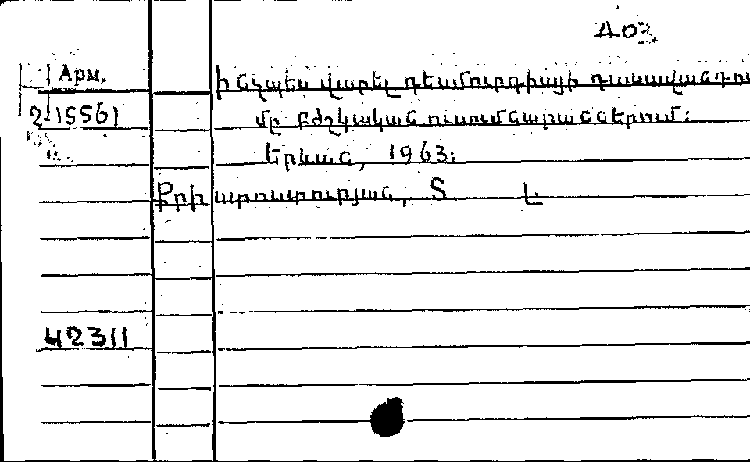 403
Арм.
Ինչպես վարել դեմուրգիայի դասավանդու
2-15561
մը բժշկական ուսումնարաններում:
Երևան, 1963:
Քրիստոստուրյան, Տ Լ
42311